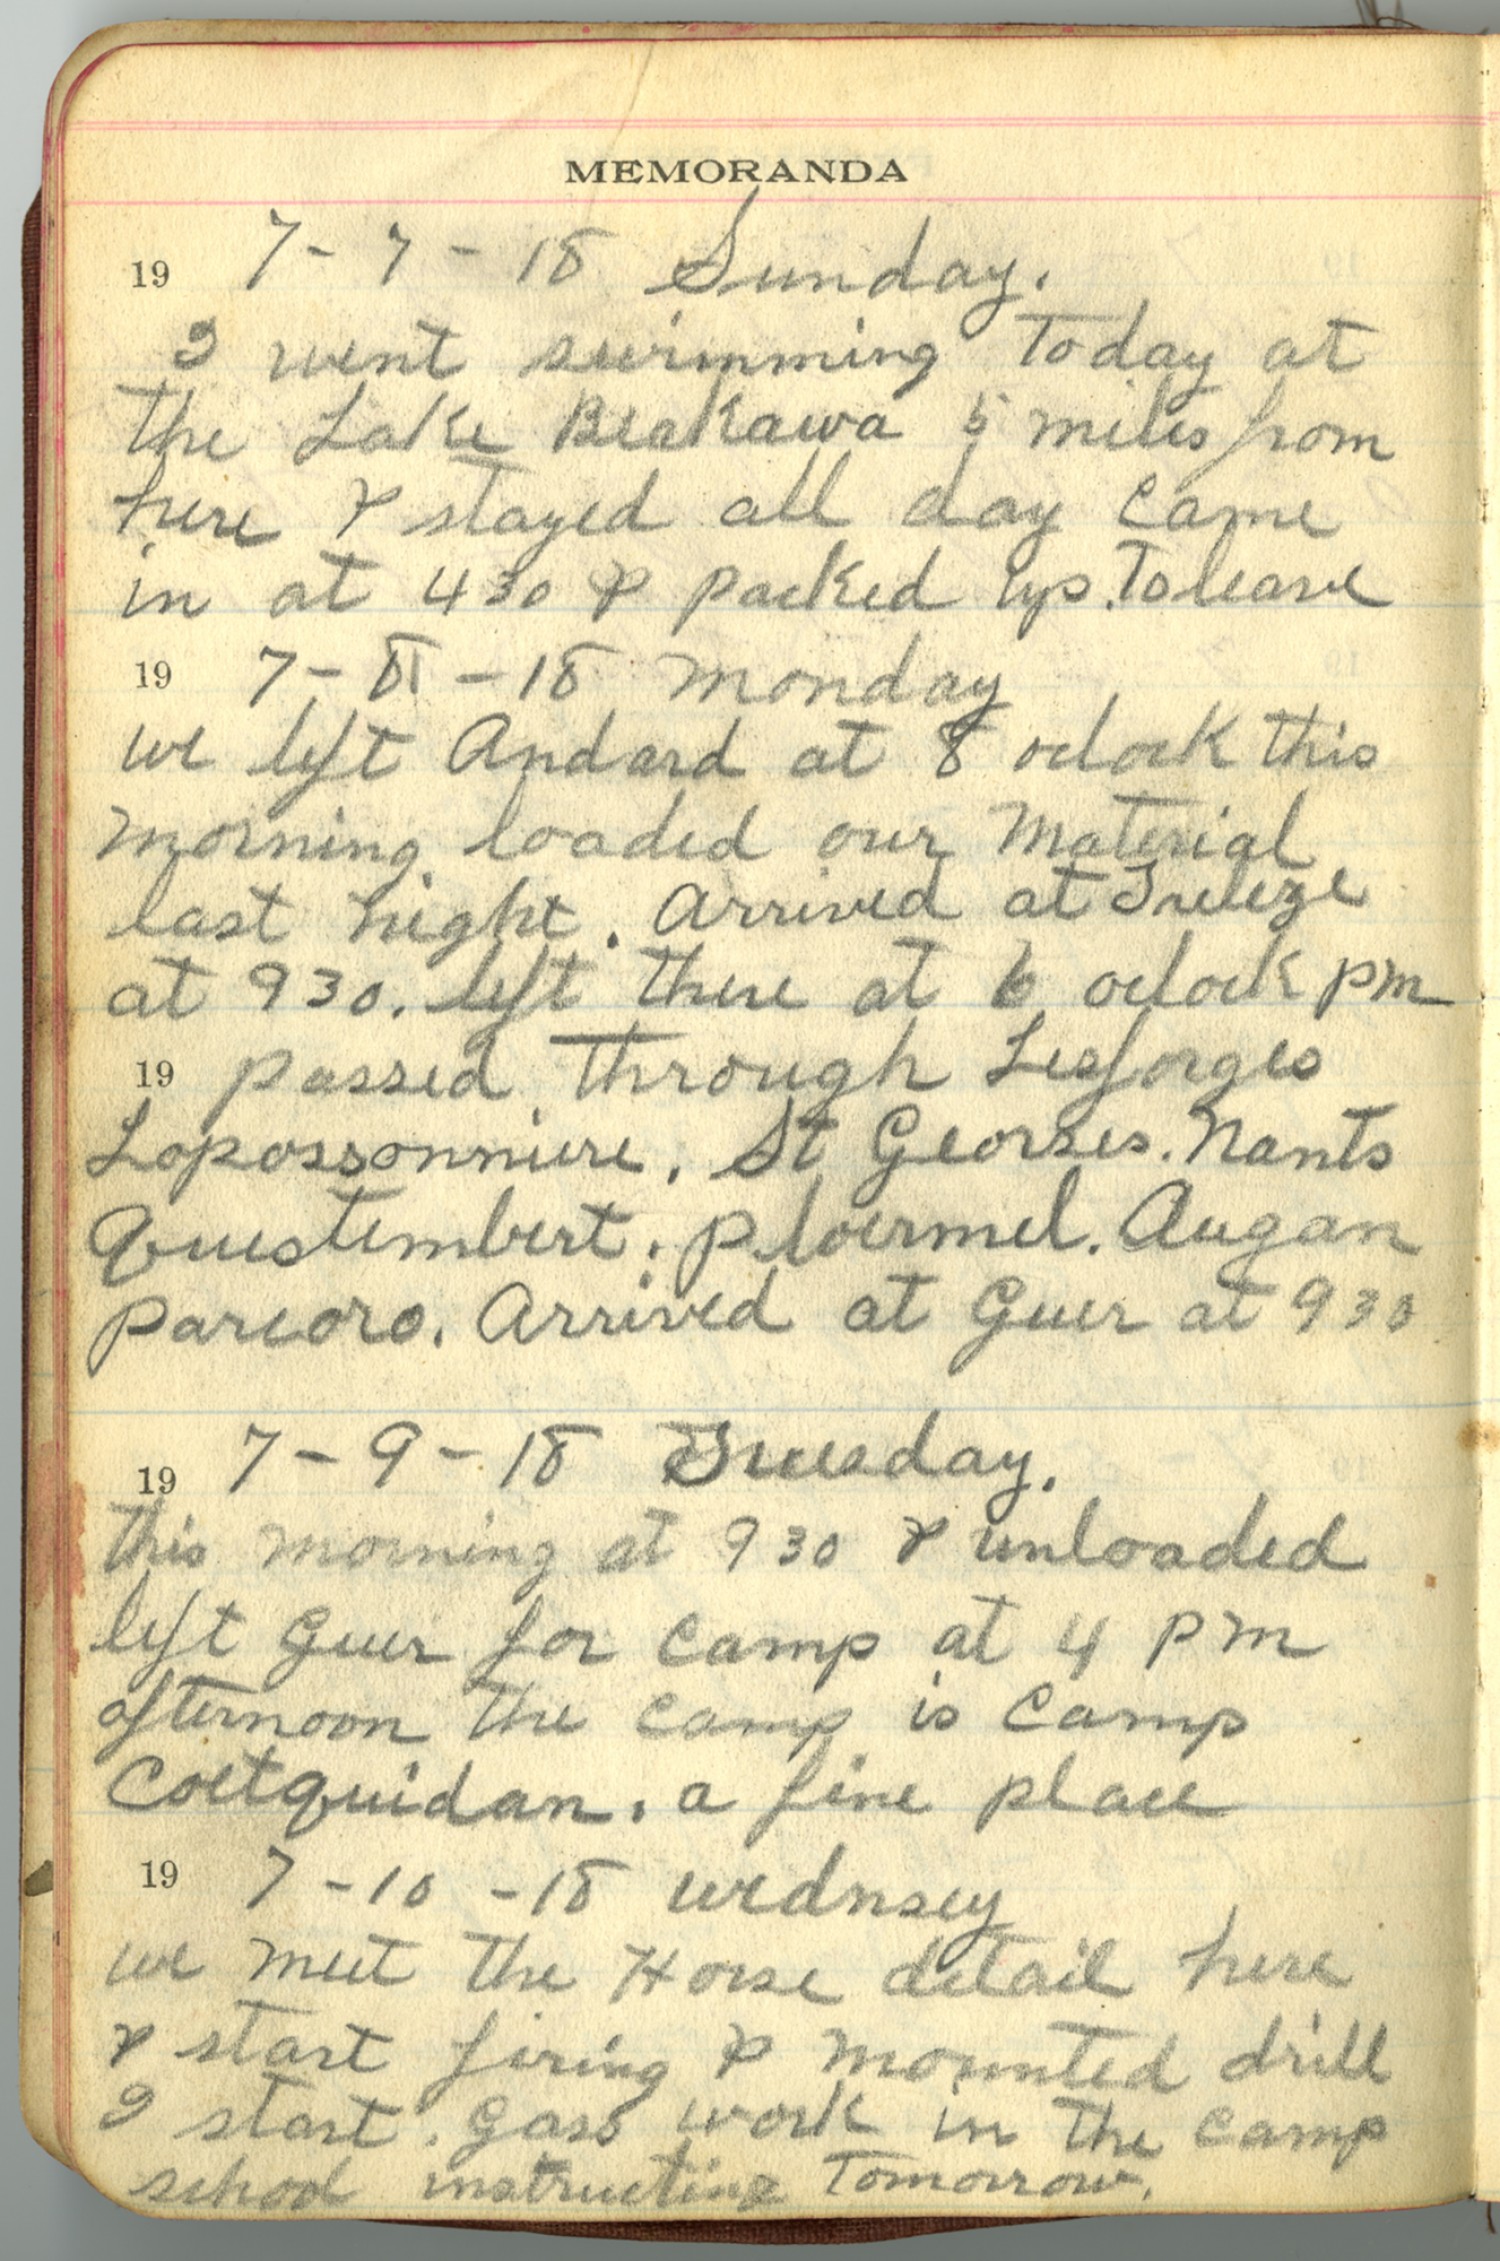 MEMORANDA
19 7-7-18 Sunday.
I went swimming today at
the Lake Beakawa 5 miles from
here & stayed all day came
in at 430 & packed up. To leave
19 7-8-18 Monday
we left Andard at 8 oclock this
morning loaded our Material
last night. Arrived at Treleze
at 930. left there at 6 oclock pm
19 passed through Lesforges
Lopossonniere. St Georses. Nants
Questembert. Ploermel. Augan
Parcoro. Arrived at Guer at 930
19 7-9-18 Tuesday.
this morning at 930 & unloaded
left Guer for camp at 4 PM
afternoon the camp is Camp
Coetquidan. a fine place
19 7-10-18 wednsey
we meet the Horse detail here
& start firing & mounted drill
I start. Gass work in the camp
school instructing Tomorrow.